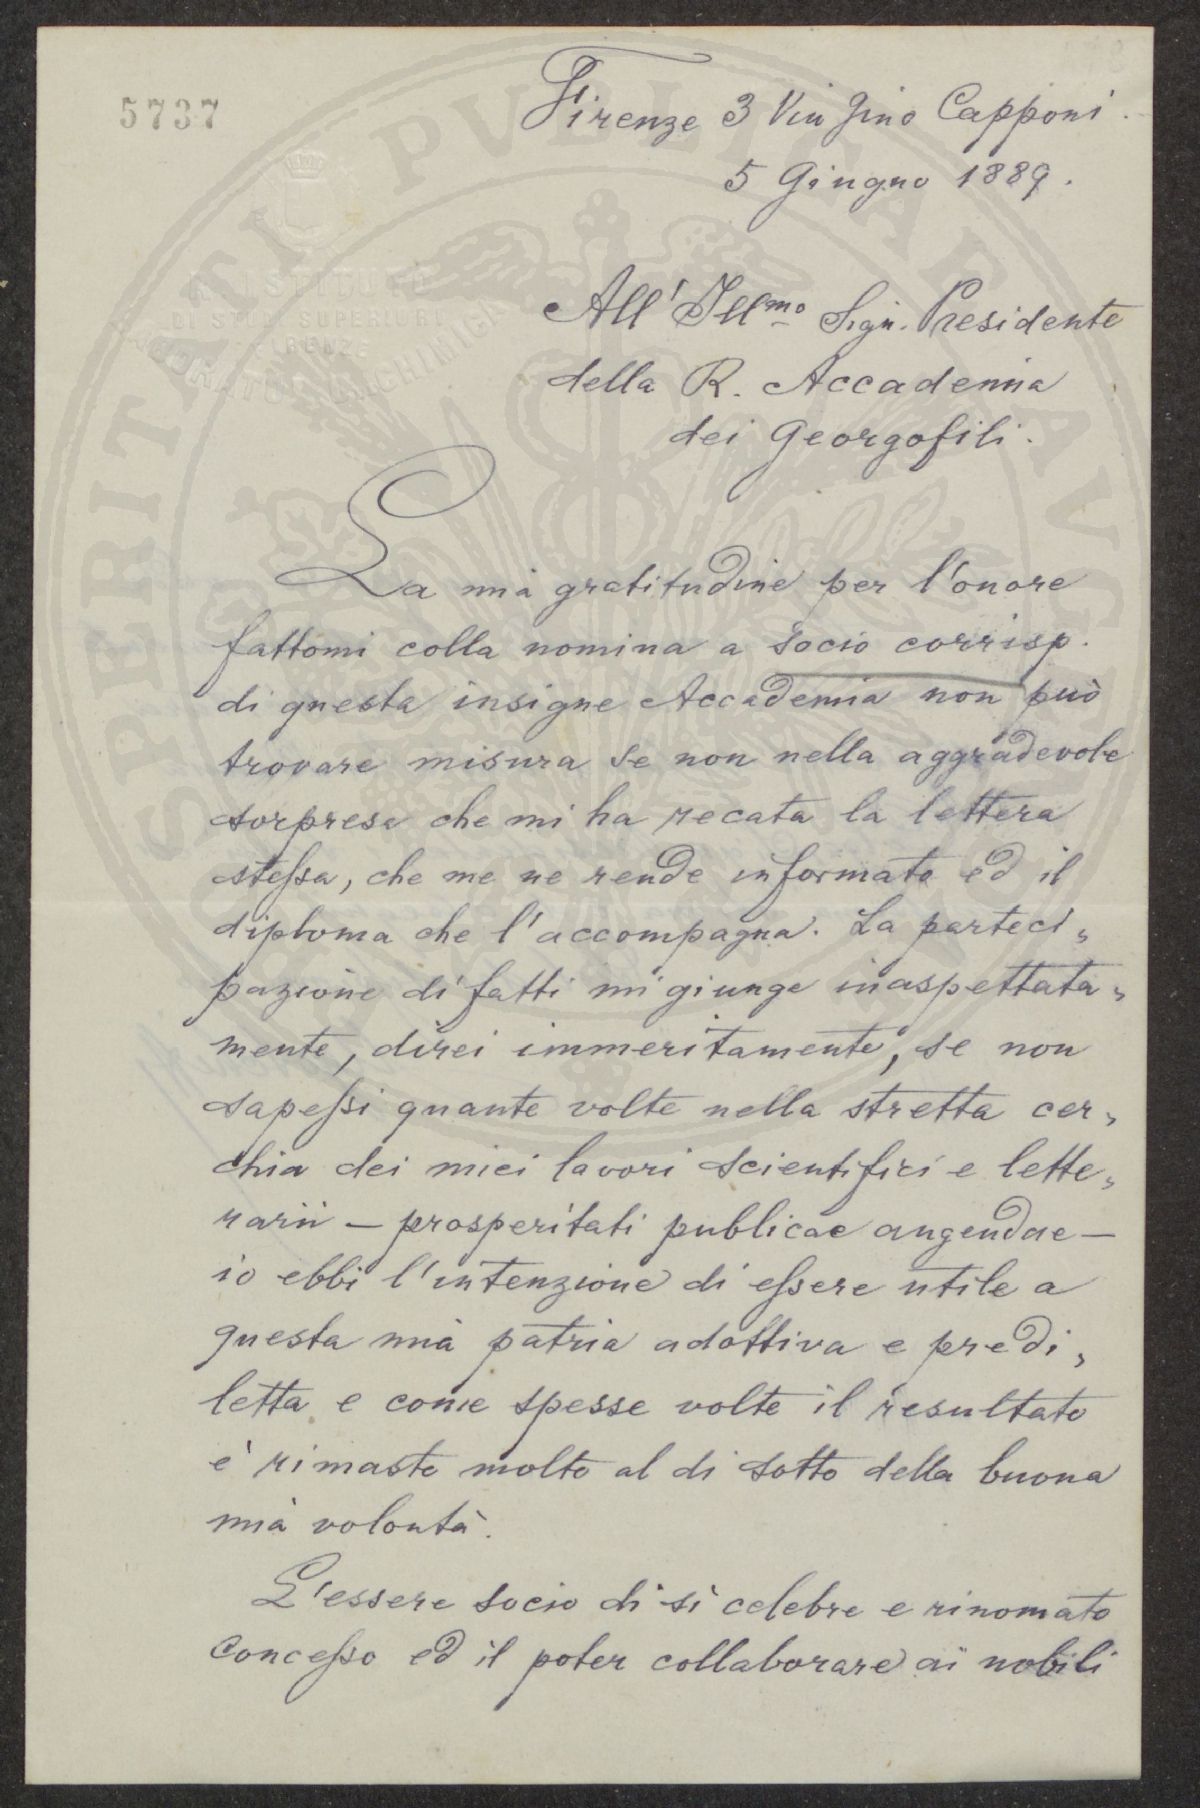 5737
Firenze 3 Via Gino Capponi.
5 Giugno 1889.
R. ISTITUTO
DI STUDI SUPERIORI
FIRENZE
All' Illmo Sign. Presidente
della R. Accademia
dei Georgofili.
La mia gratitudine per l'onore
fattomi colla nomina a socio corrisp.
di questa insigne Accademia non può
trovare misura se non nella aggradevole
sorpresa che mi ha recata la lettera
stessa, che me ne rende informato ed il
diploma che l'accompagna. La parteci„
pazione difatti mi giunge inaspettata„
mente, direi immeritamente, se non
sapessi quante volte nella stretta cer„
chia dei miei lavori scientifici e lette„
rarii — prosperitati publicae augendae —
io ebbi l'intenzione di essere utile a
questa mia patria adottiva e predi„
letta e come spesse volte il resultato
è rimasto molto al di sotto della buona
mia volontà.
L'essere socio di sì celebre e rinomato
Concesso ed il poter collaborare ai nobili
PROSPERITATI PVBLICAE AVGENDAE